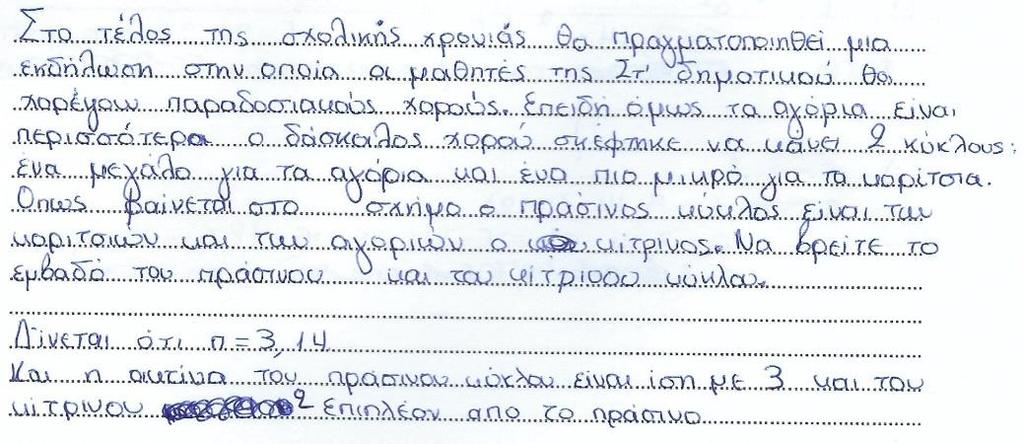 Στο τέλος της σχολικής χρονιάς θα πραγματοποιηθεί μια
εκδήλωση στην οποία οι μαθητές της Στ' δημοτικού θα
χορέψουν παραδοσιακούς χορούς. Επειδή όμως τα αγόρια είναι
περισσότερα ο δάσκαλος χορού σκέφτηκε να κάνει 2 κύκλους:
ένα μεγάλο για τα αγόρια και ένα πιο μικρό για τα κορίτσια.
Όπως βαίνεται στο σχήμα ο πράσινος κύκλος είναι των
κοριτσιών και των αγοριών ο κίτρινος. Να βρείτε το
εμβαδό του πράσινου και του κίτρινου κύκλου.
Δίνεται ότι π = 3,14
Και η ακτίνα του πράσινου κύκλου είναι ίση με 3 και του
κίτρινου 2 επιπλέον από το πράσινο